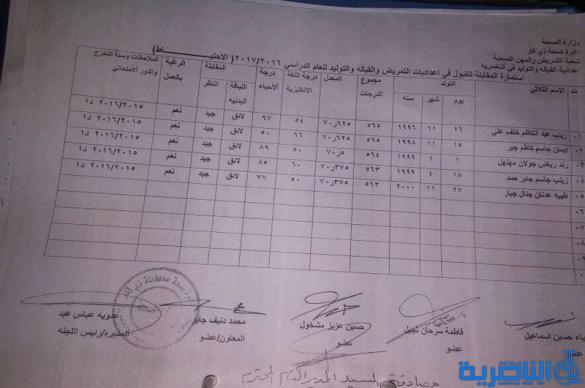 وزارة الصحة
دائرة صحة ذي قار
شعبة التمريض والمهن الصحية
اعدادية القباله والتوليد في الناصريه
استمارة المقابلة للقبول في اعداديات التمريض والقباله والتوليد للعام الدراسي ٢٠١٧/٢٠١٦ (الاحتيـــــــاط)
ت الاسم الثلاثي التولد يوم شهر سنه مجموع الدرجات المعدل درجة اللغة الانكليزية درجة الاحياء المقابلة اللياقة البدنيه النظر الرغبة بالعمل الملاحظات وسنة التخرج والدور الامتحاني
زينب عبد الكاظم خلف علي ٢٦ ١١ ١٩٩٦ ٥٦٥ ٧٠٫٦٢٥ ٥٤ ٩٧ لائق جيد نعم ٢٠١٦/٢٠١٥ د١
ايمان جاسم كاظم جبر ١٥ ١١ ١٩٩٨ ٥٦٥ ٧٠٫٦٢٥ ٦٦ ٥٠ لائق جيد نعم ٢٠١٦/٢٠١٥ د١
رند رياض جولان مهلهل ١ ١ ١٩٩٩ ٥٦٤ ٧٠٫٥ ٥٠ ٨٩ لائق جيد نعم ٢٠١٦/٢٠١٥ د١
زينب جاسم جابر حمد ١٨ ٤ ١٩٩٩ ٥٦٣ ٧٠٫٣٧٥ ٦٠ ٨٥ لائق جيد نعم ٢٠١٦/٢٠١٥ د١
طيبه عدنان جتال جبار ٢٧ ١١ ٢٠٠٠ ٥٦٣ ٧٠٫٣٧٥ ٥٠ ٧٧ لائق جيد نعم ٢٠١٦/٢٠١٥ د١
حسين اسماعيل
عضو
فاطمة سرحان نجيل
عضو
حسين عزيز مشخول
عضو
محمد دنيف جابر
المعاون/عضو
عدويه عباس عبد
المديره/رئيس اللجنه
مصادقة السيد المدير العام المحترم
الناصرية